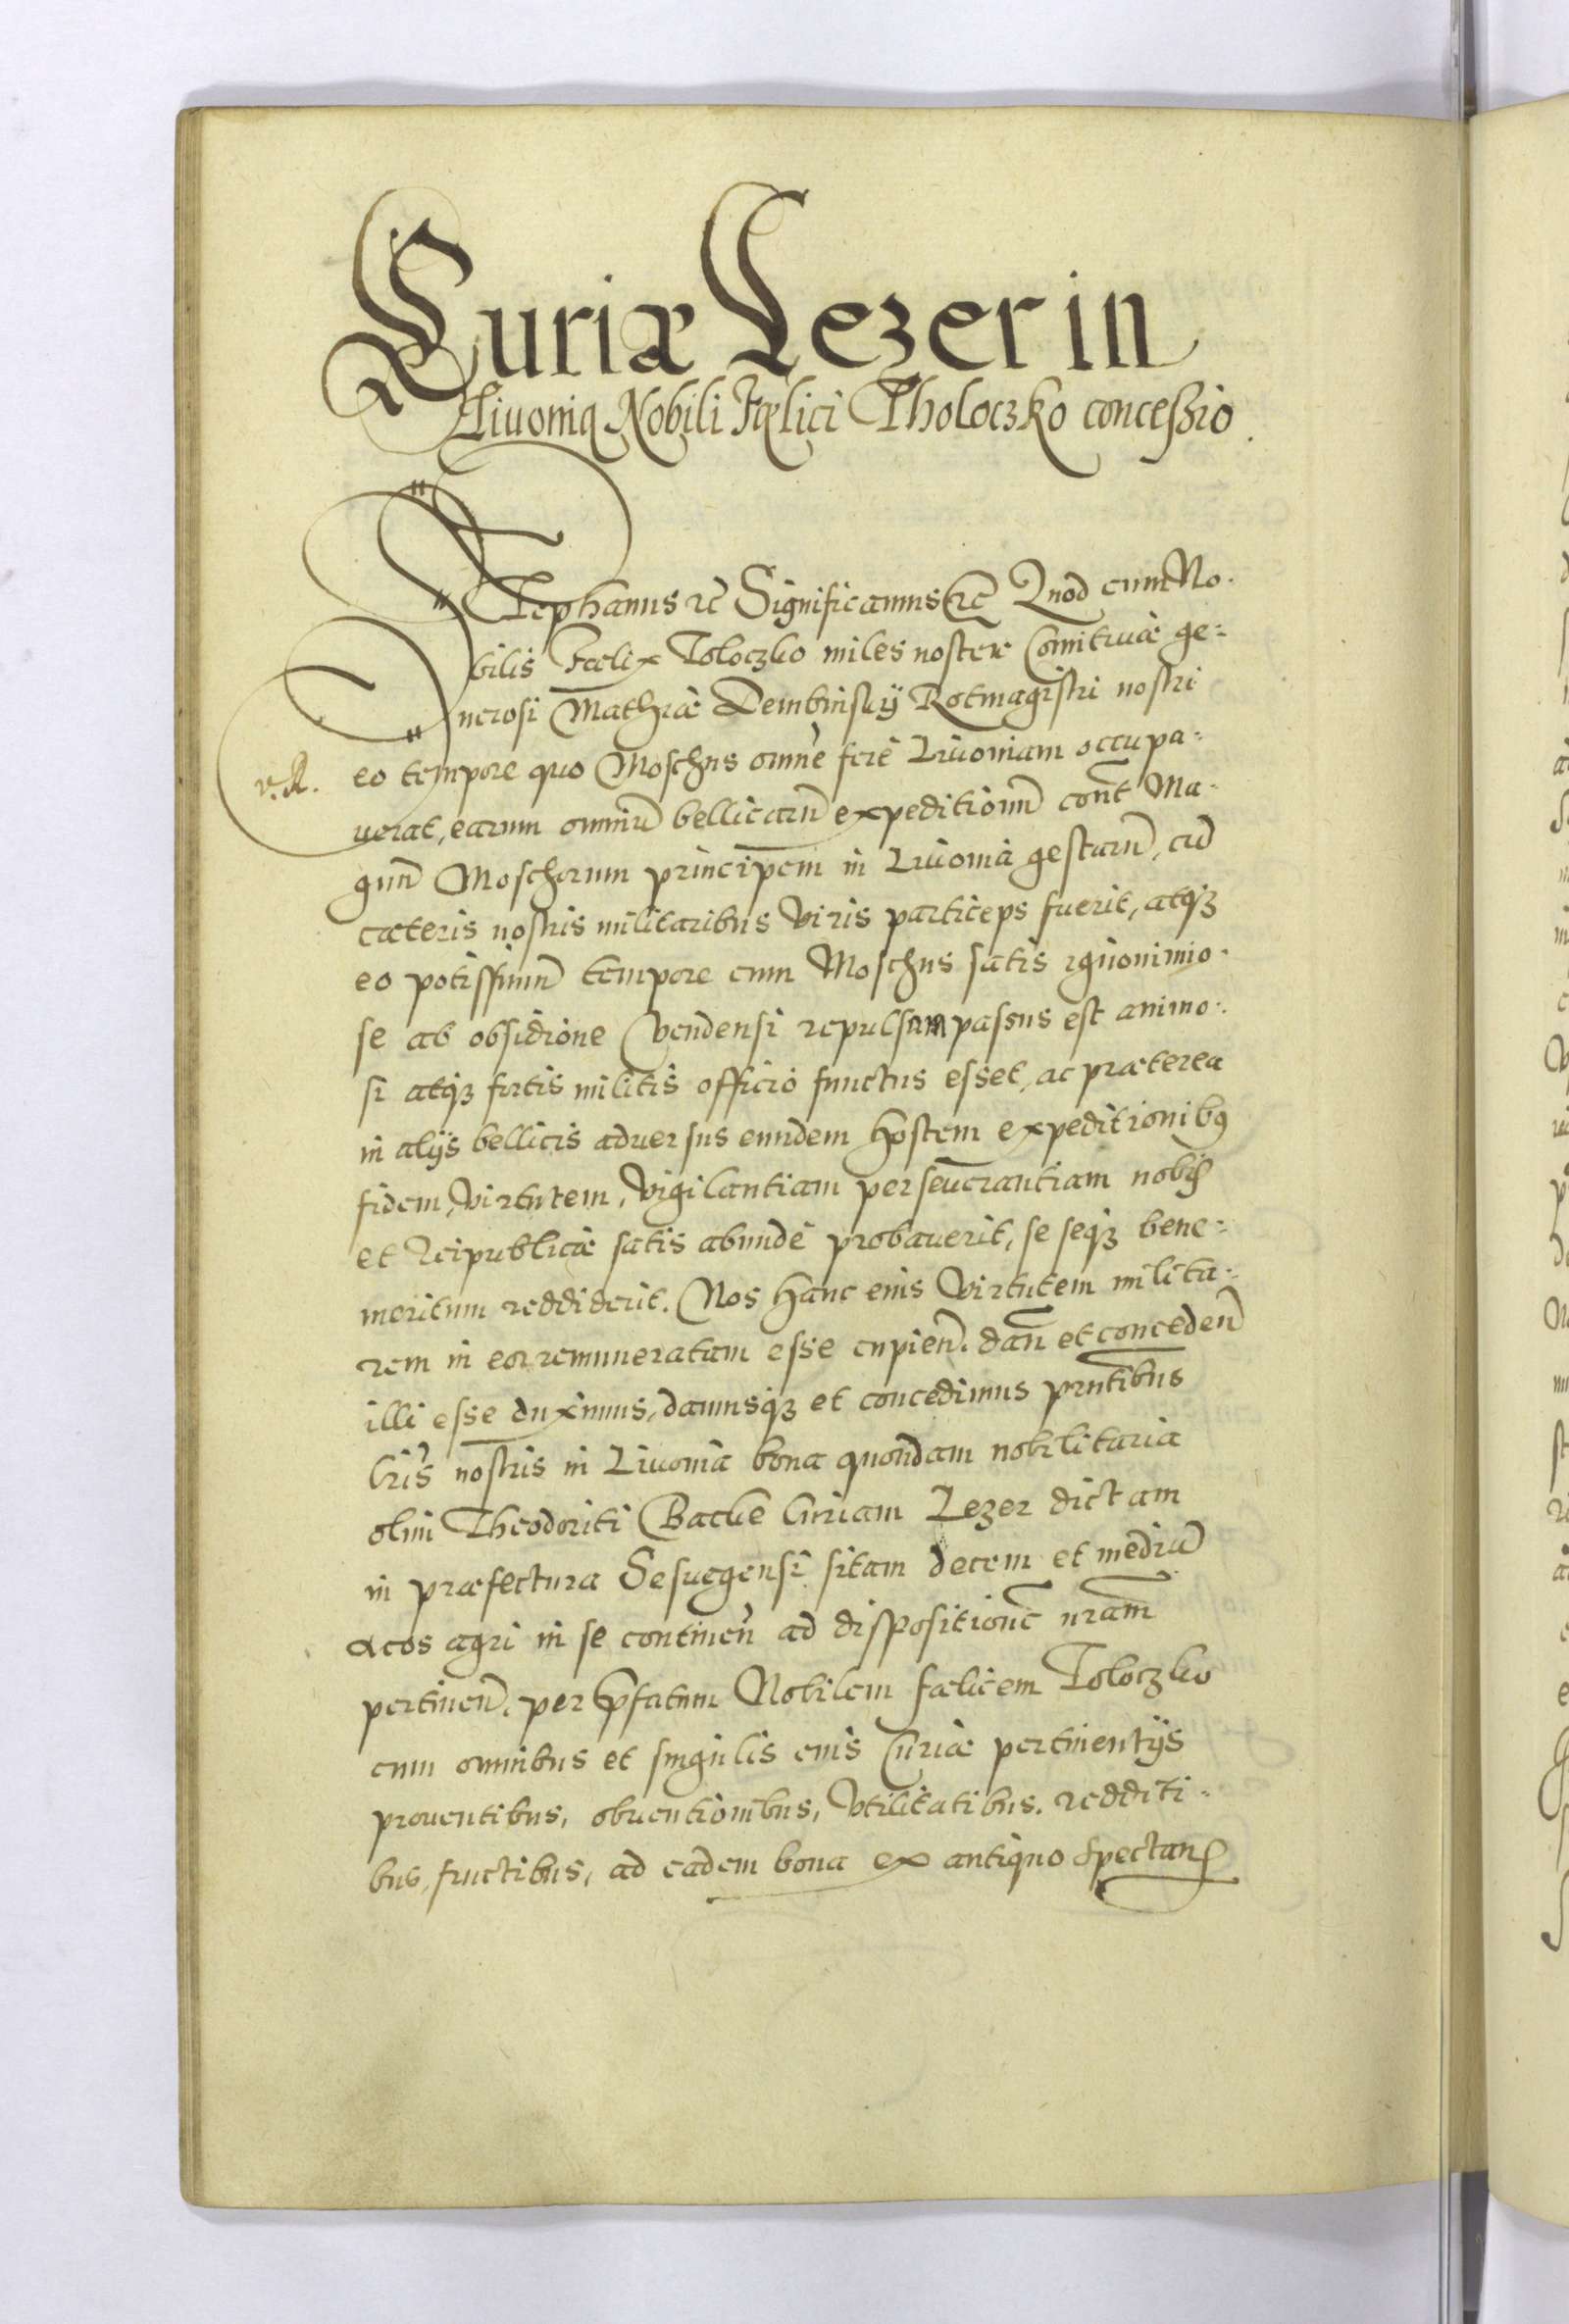 Curiæ Lezer in
Livonia Nobili Fælici Tholoczko concessio.
Stephanus etc Significamus etc Quod cum No-
bilis Fælix Toloczko miles noster Comitivæ ge-
nerosi Mathiæ Dembinskÿ Rotmagistri nostri
v. A. eo tempore quo Moschus omnē ferè Livoniam occupa-
verat, earum omniū bellicarū expeditionū cont̃ Ma-
gnū Moschorum principem in Livonia gestarū, cū
cæteris nostris militaribus viris particeps fuerit, atq3
eo potissimū tempore cum Moschus satis ignonimio-
se ab obsidione Vendensi repulsam passus est animo-
si atq3 fortis militis officio functus esset, ac præterea
in alÿs bellicis adversus eundem hostem expeditionib9
fidem, virtutem, vigilantiam perseverantiam nobis
et Reipublicæ satis abundè probaverit, se seq3 bene-
meritum reddiderit. Nos hanc eius virtutem milita-
rem in eo remuneratam esse cupien̄. dan̄ et conceden̄
illi esse duximus, damusq3 et concedimus pr̄ntibus
lr̄is nostris in Livonia bona quondam nobilitaria
olim Theodoriti Backe Curiam Lezer dictam
in præfectura Sesvegensi sitam decem et mediū
uncos agri in se continen̄ ad dispositionē nr̄am
pertinen̄. per p̄fatum Nobilem fælicem Toloczko
cum omnibus et singulis eius Curiæ pertinentÿs
proventibus, obventionibus, utilitatibus. redditi-
bus, fructibus, ad eadem bona ex antiquo spectan̄